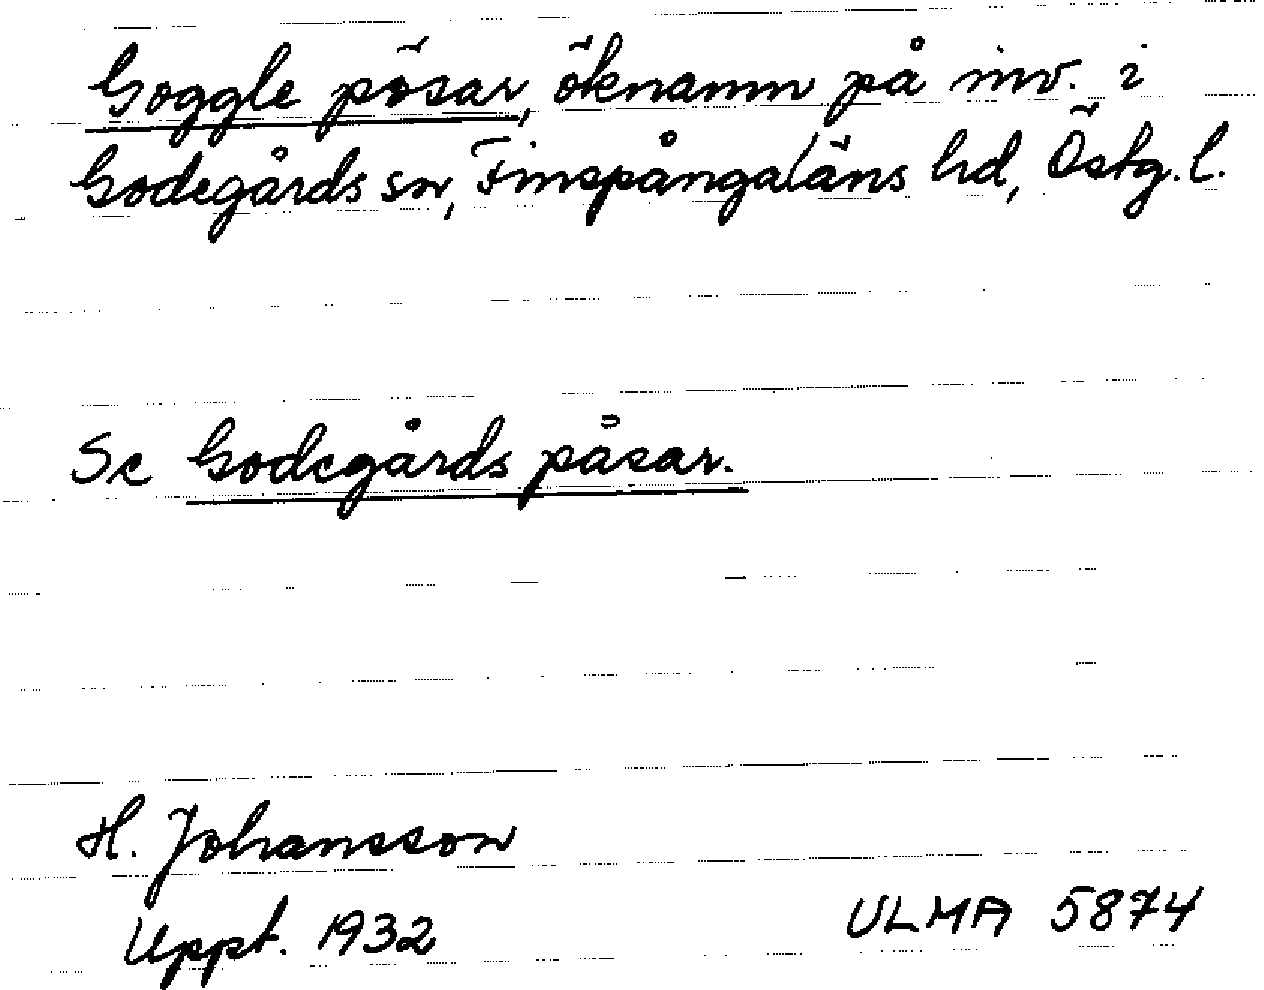 Goggle pösar, öknamn på inv. i
Godegårds sn, Finspångaläns hd, Östg.l.
Se Godegårds påsar.
H. Johansson
Uppt. 1932
ULMA 5874